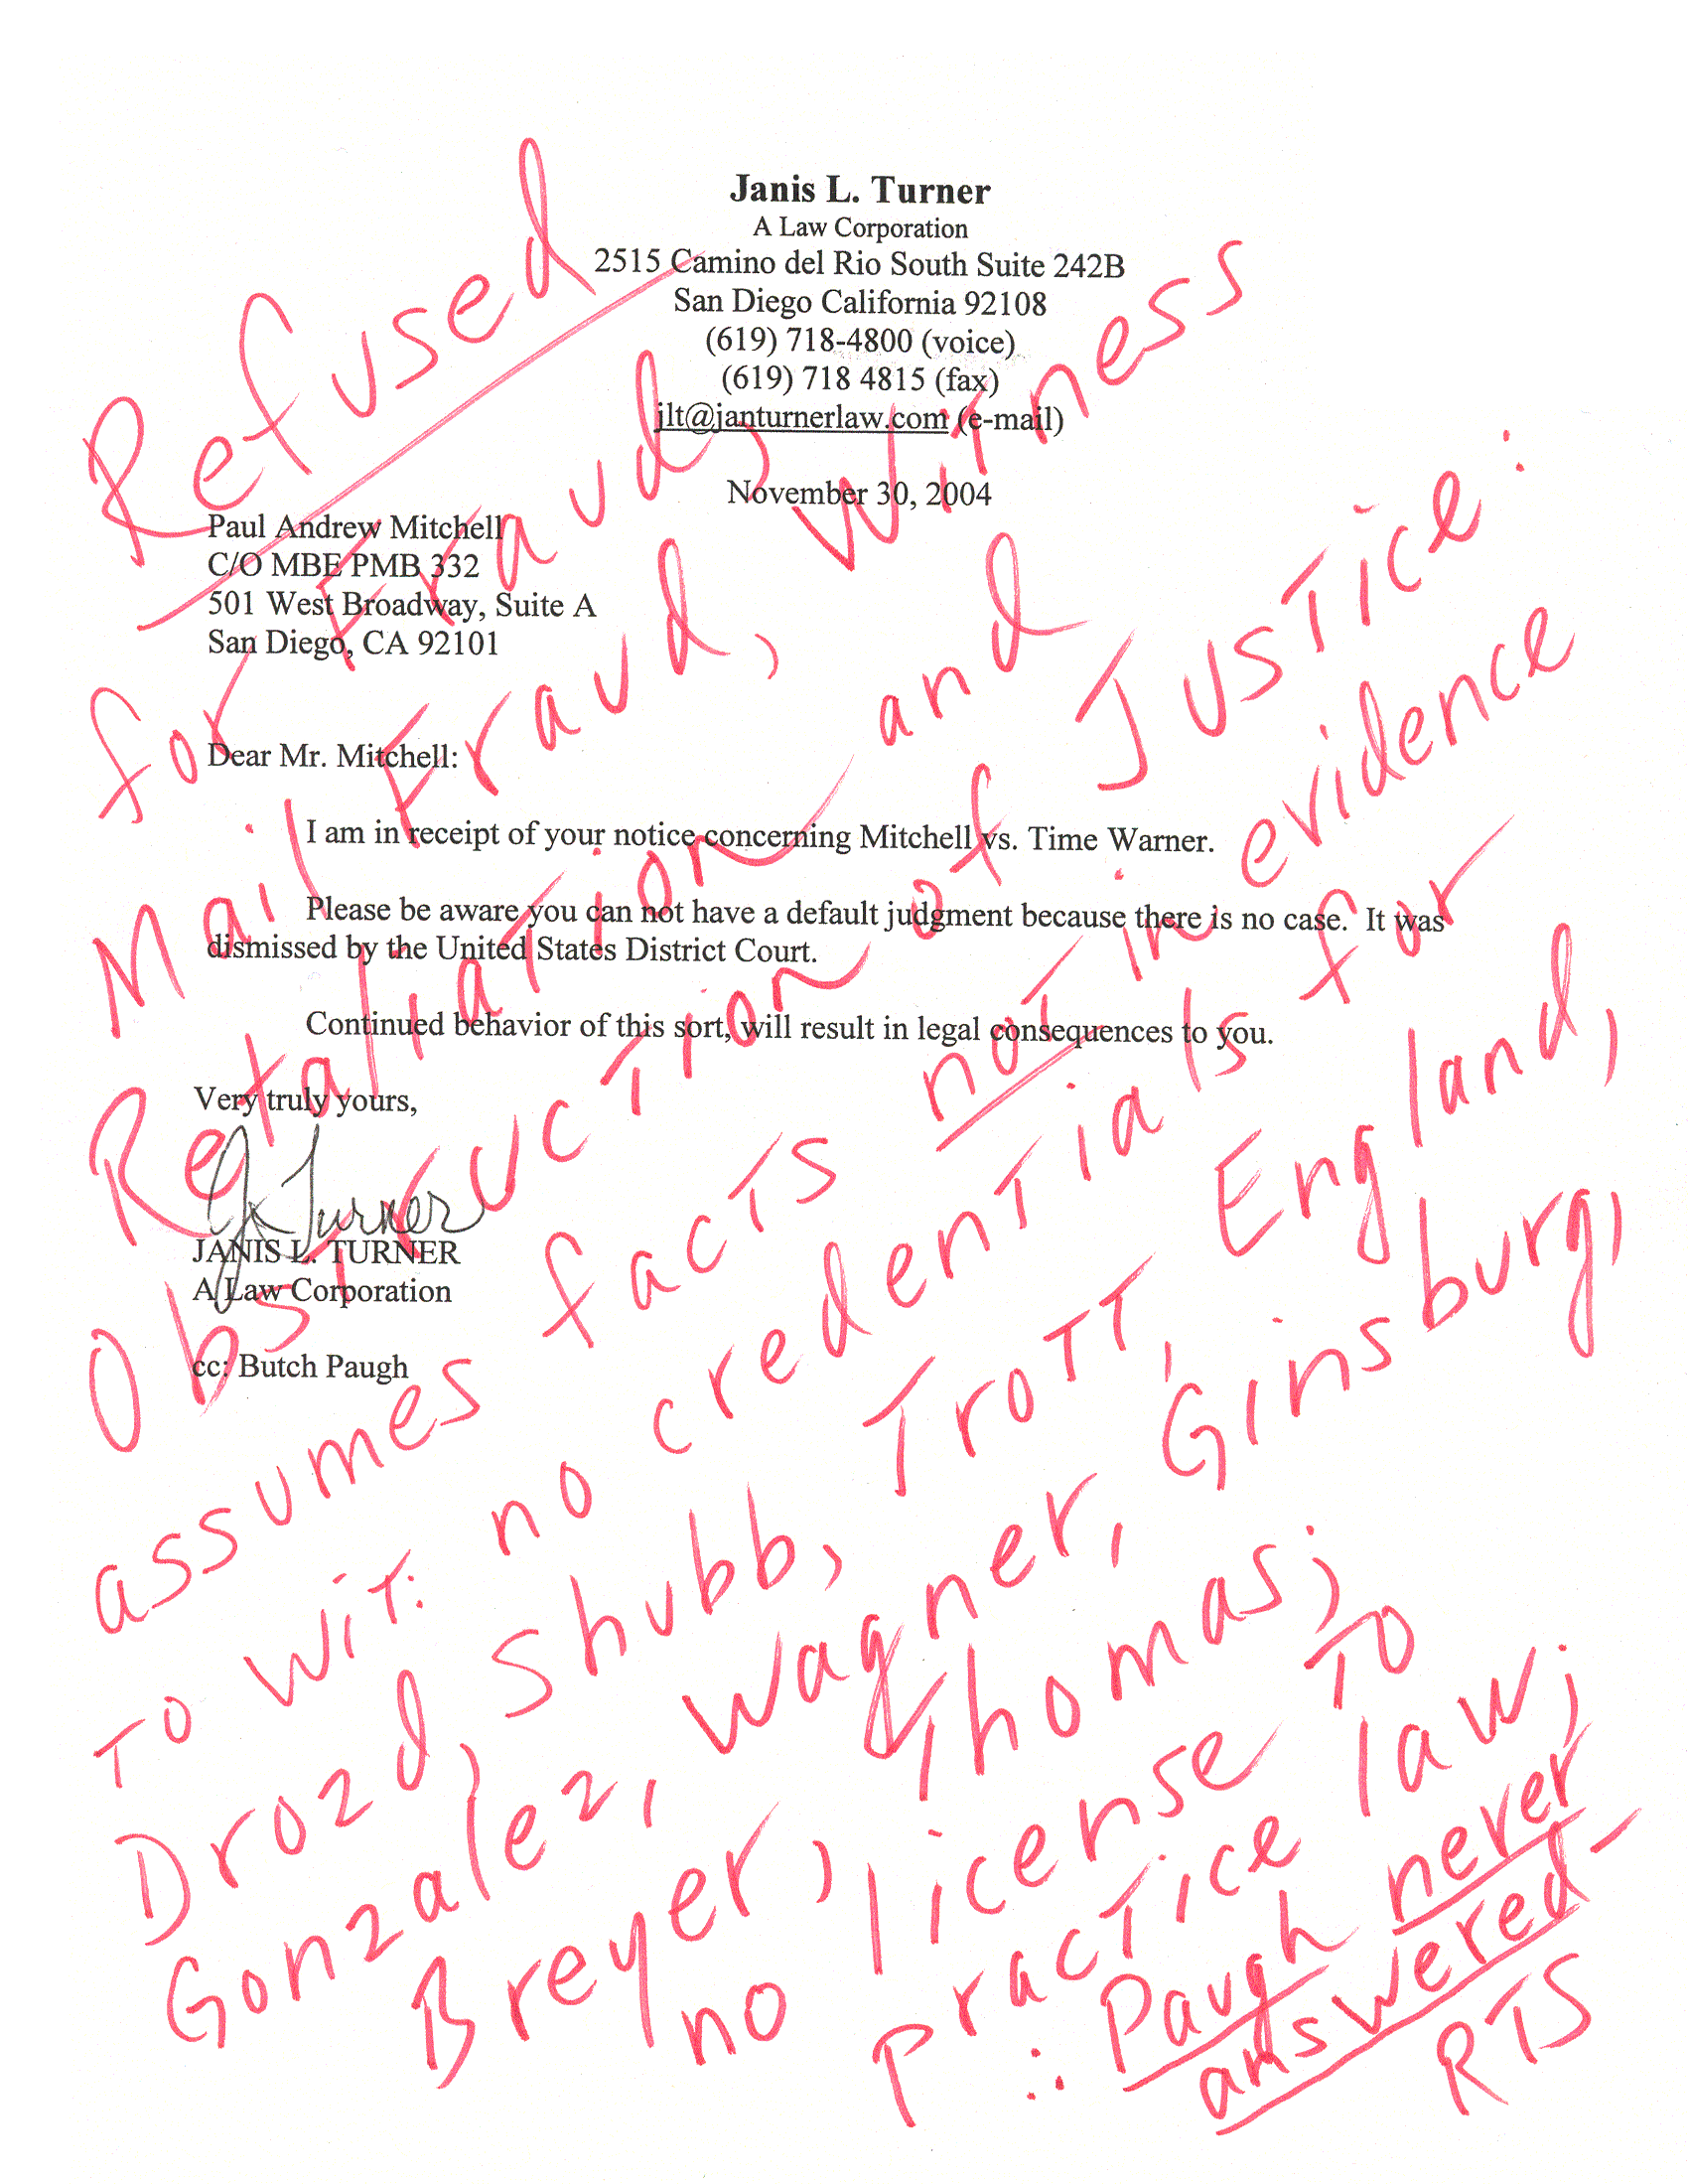 Janis L. Turner
A Law Corporation
2515 Camino del Rio South Suite 242B
San Diego California 92108
(619) 718-4800 (voice)
(619) 718 4815 (fax)
jlt@janturnerlaw.com (e-mail)
November 30, 2004
Paul Andrew Mitchell
C/O MBE PMB 332
501 West Broadway, Suite A
San Diego, CA 92101
Dear Mr. Mitchell:
I am in receipt of your notice concerning Mitchell vs. Time Warner.
Please be aware you can not have a default judgment because there is no case. It was
dismissed by the United States District Court.
Continued behavior of this sort, will result in legal consequences to you.
Very truly yours,
J Turner
JANIS L. TURNER
A Law Corporation
cc: Butch Paugh
Refused
for Fraud,
Mail Fraud, Witness
Retaliation and
Obstruction of Justice:
assumes facts not in evidence
to wit: no credentials for
Drozd, Shubb, Trott, England,
Gonzalez, Wagner, Ginsburg,
Breyer, Thomas;
no license to
practice law;
∴ Paugh never
answered -
RTS